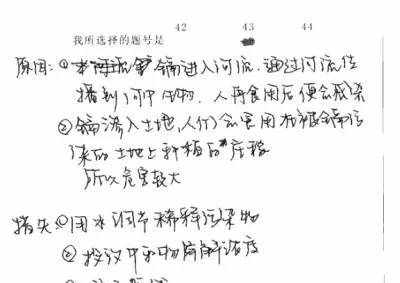 42 43 44
我所选择的题号是
原因:①镉进入河流,通过河流传
播到河中生物,人再食用后便会感染
②镉渗入土地,人们会食用在被镉污
染的土地上种植的庄稼
所以危害较大
措失:①用水调节稀释污染物
②投放中和物降解浓度